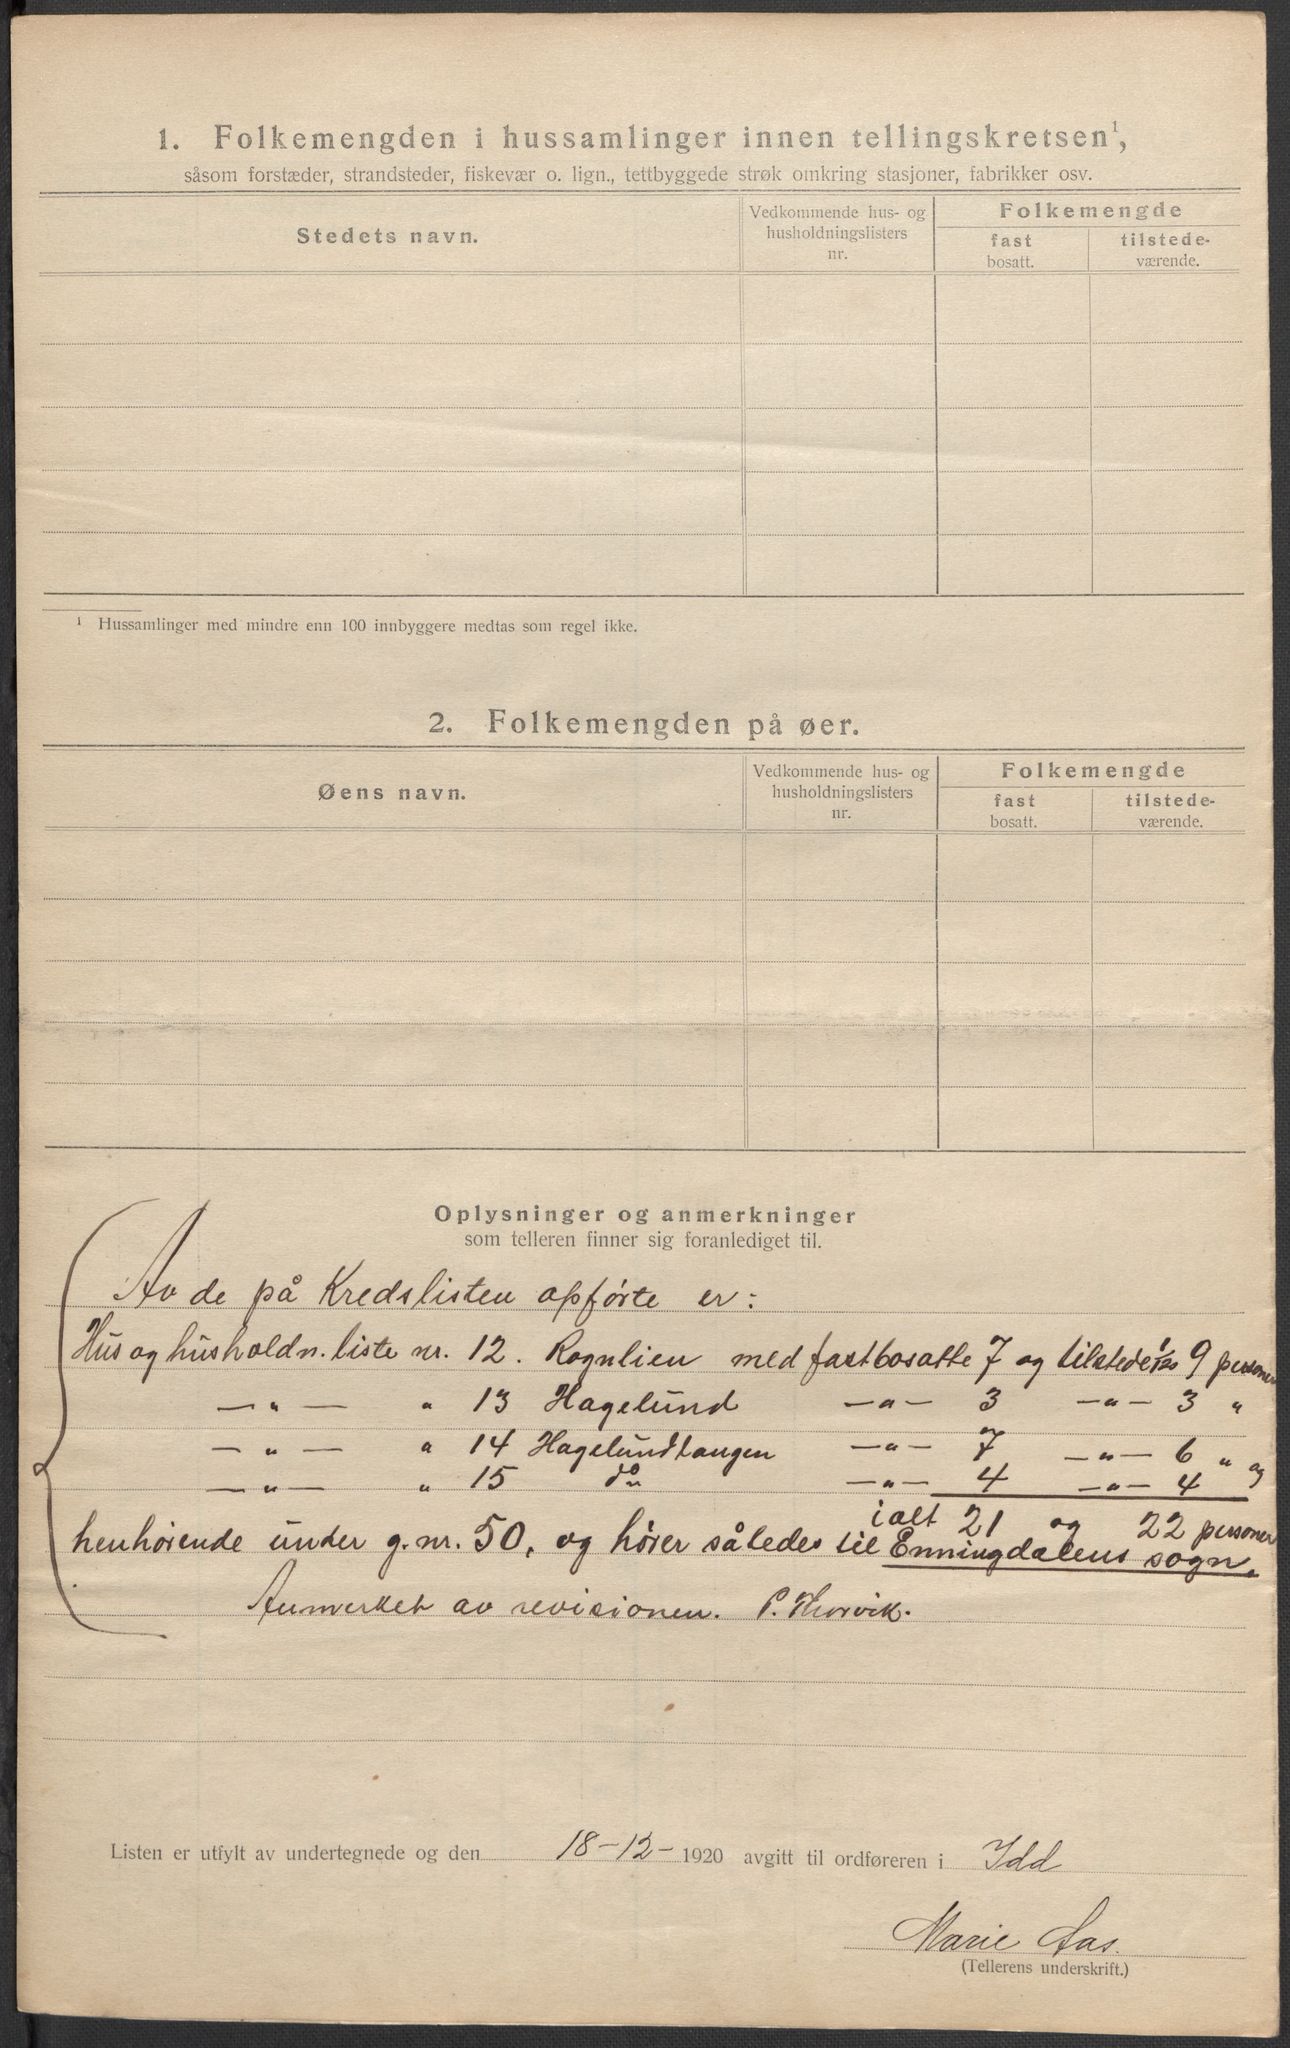 1. Folkemengden i hussamlinger innen tellingskretsen¹,
såsom forstæder, strandsteder, fiskevær o. lign., tettbyggede strøk omkring stasjoner, fabrikker osv.
Stedets navn.
Vedkommende hus- og
husholdningslisters
nr.
Folkemengde
fast
bosatt.
tilstede-
værende.
¹ Hussamlinger med mindre enn 100 innbyggere medtas som regel ikke.
2. Folkemengden på øer.
Øens navn.
Vedkommende hus- og
husholdningslisters
nr.
Folkemengde
fast
bosatt.
tilstede-
værende.
Oplysninger og anmerkninger
som telleren finner sig foranlediget til.
Av de på Kredslisten opførte er:
Hus og husholdn. liste nr. 12. Rognlien med fastbosatte 7 og tilstede 1/12 9 personer
—„— „ 13 Hagelund —„— 3 —„— 3 „
—„— „ 14 Hagelundtangen —„— 7 —„— 6 „ og
—„— „ 15 do —„— 4 —„— 4
ialt 21 og 22 personer
henhørende under g.nr. 50, og hører således til Enningdalens sogn.
Anmerket av revisionen. P. Thorvik.
Listen er utfylt av undertegnede og den 18-12- 1920 avgitt til ordføreren i Idd
Marie Aas.
(Tellerens underskrift.)